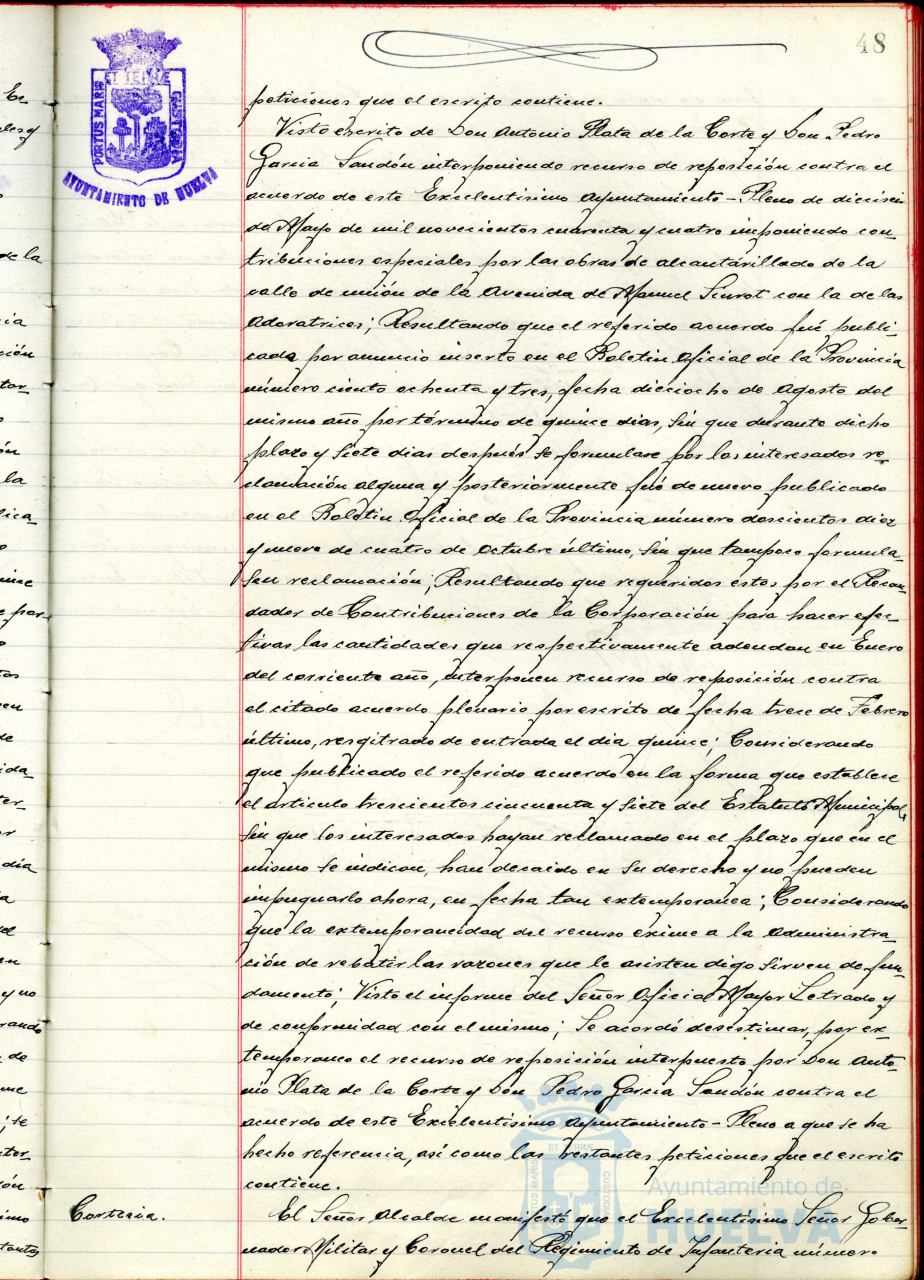 48
PORTUS MARIS ET TERRAE CUSTODIA
AYUNTAMIENTO DE HUELVA
peticiones que el escrito contiene.
Visto escrito de Don Antonio Plata de la Corte y Don Pedro
Garcia Sandón interponiendo recurso de reposición contra el
acuerdo de este Excelentisimo Ayuntamiento-Pleno de dieciseis
de Mayo de mil novecientos cuarenta y cuatro imponiendo con-
tribuciones especiales por las obras de alcantarillado de la
calle de unión de la Avenida de Manuel Siurot con la de las
Adoratrices; Resultando que el referido acuerdo fué publi-
cada por anuncio inserto en el Boletin Oficial de la Provincia
número ciento ochenta y tres, fecha dieciocho de Agosto del
mismo año por término de quince dias, sin que durante dicho
plazo y siete dias después se formulase por los interesados re-
clamación alguna y posteriormente fué de nuevo publicado
en el Boletin Oficial de la Provincia número doscientos diez
y nueve de cuatro de Octubre último, sin que tampoco formula-
sen reclamación; Resultando que requeridos estos por el Recau-
dador de Contribuciones de la Corporación para hacer efec-
tivas las cantidades que respectivamente adeudan en Enero
del corriente año, interponen recurso de reposición contra
el citado acuerdo plenario por escrito de fecha trece de Febrero
último, resgitrado de entrada el dia quince; Considerando
que publicado el referido acuerdo en la forma que establece
el articulo trescientos cincuenta y siete del Estatuto Municipal,
sin que los interesados hayan reclamado en el plazo que en el
mismo se indican, han decaido en su derecho y no pueden
impugnarlo ahora, en fecha tan extemporanea; Considerando
que la extemporaneidad del recurso exime a la Administra-
ción de rebatir las razones que le asisten digo sirven de fun-
damento; Visto el informe del Señor Oficial Mayor Letrado y
de conformidad con el mismo; Se acordó desestimar, por ex-
temporaneo el recurso de reposición interpuesto por Don Anto-
nio Plata de la Corte y Don Pedro Garcia Sandón contra el
acuerdo de este Excelentisimo Ayuntamiento-Pleno a que se ha
hecho referencia, así como las restantes peticiones que el escrito
contiene.
Cortesia.
El Señor Alcalde manifestó que el Excelentisimo Señor Gober-
nador Militar y Coronel del Regimiento de Infanteria número
Ayuntamiento de
HUELVA